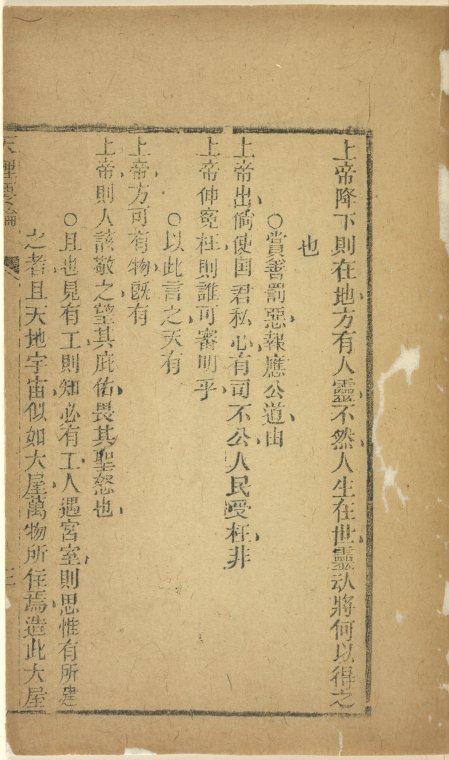 上帝降下則在地方有人靈不然人生在世靈動將何以得之
也
○賞善罰惡報應公道由
上帝出倘使国君私心有司不公人民受枉非
上帝伸冤枉則誰可審明乎
○以此言之天有
上帝方可有物旣有
上帝則人該敬之望其庇佑畏其聖怒也
○且也見有工則知必有工人遇宮室則思惟有所建
之者且天地宇宙似如大屋萬物所住焉造此大屋
天理要論